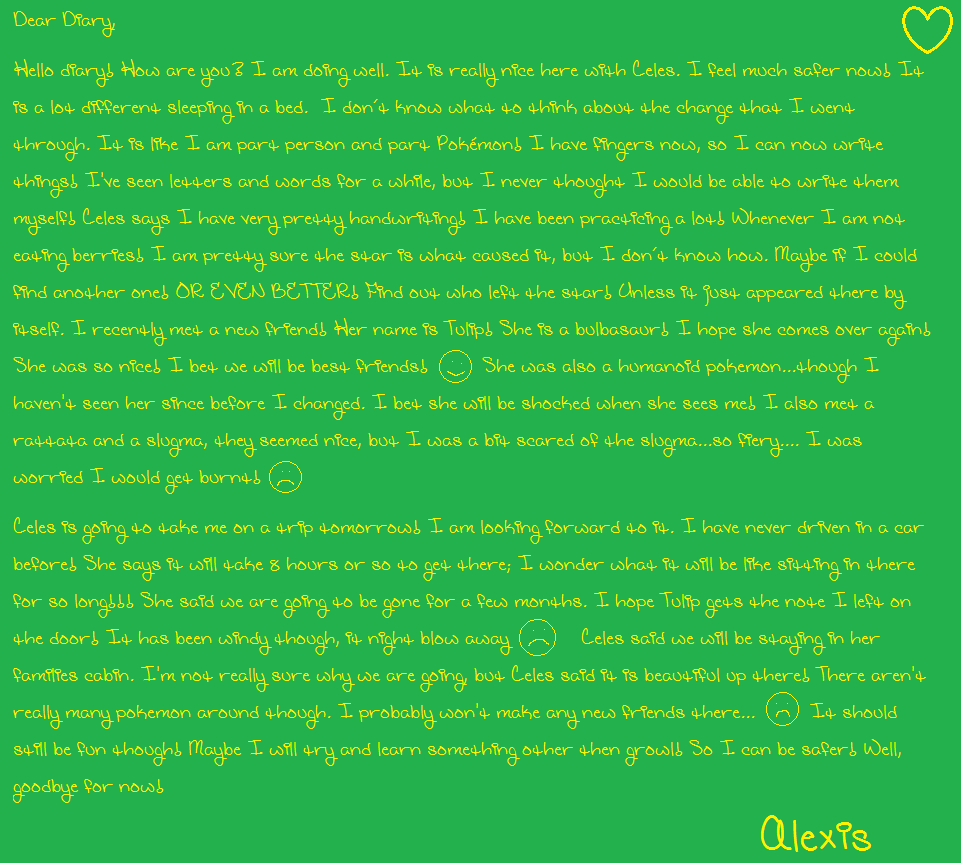 Dear Diary,
Hello diary! How are you? I am doing well. It is really nice here with Celes. I feel much safer now! It
is a lot different sleeping in a bed. I don't know what to think about the change that I went
through. It is like I am part person and part Pokémon! I have fingers now, so I can now write
things! I've seen letters and words for a while, but I never thought I would be able to write them
myself! Celes says I have very pretty handwriting! I have been practicing a lot! Whenever I am not
eating berries! I am pretty sure the star is what caused it, but I don't know how. Maybe if I could
find another one! OR EVEN BETTER! Find out who left the star! Unless it just appeared there by
itself. I recently met a new friend! Her name is Tulip! She is a bulbasaur! I hope she comes over again!
She was so nice! I bet we will be best friends! She was also a humanoid pokemon...though I
haven't seen her since before I changed. I bet she will be shocked when she sees me! I also met a
rattata and a slugma, they seemed nice, but I was a bit scared of the slugma...so fiery.... I was
worried I would get burnt!
Celes is going to take me on a trip tomorrow! I am looking forward to it. I have never driven in a car
before! She says it will take 8 hours or so to get there; I wonder what it will be like sitting in there
for so long!!! She said we are going to be gone for a few months. I hope Tulip gets the note I left on
the door! It has been windy though, it night blow away Celes said we will be staying in her
families cabin. I'm not really sure why we are going, but Celes said it is beautiful up there! There aren't
really many pokemon around though. I probably won't make any new friends there... It should
still be fun though! Maybe I will try and learn something other then growl! So I can be safer! Well,
goodbye for now!
Alexis